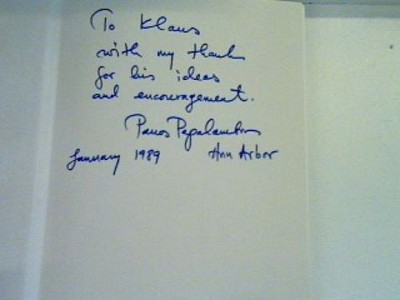 To Klaus
with my thanks
for his ideas
and encouragement.
Panos Papalambros
January 1989 Ann Arbor